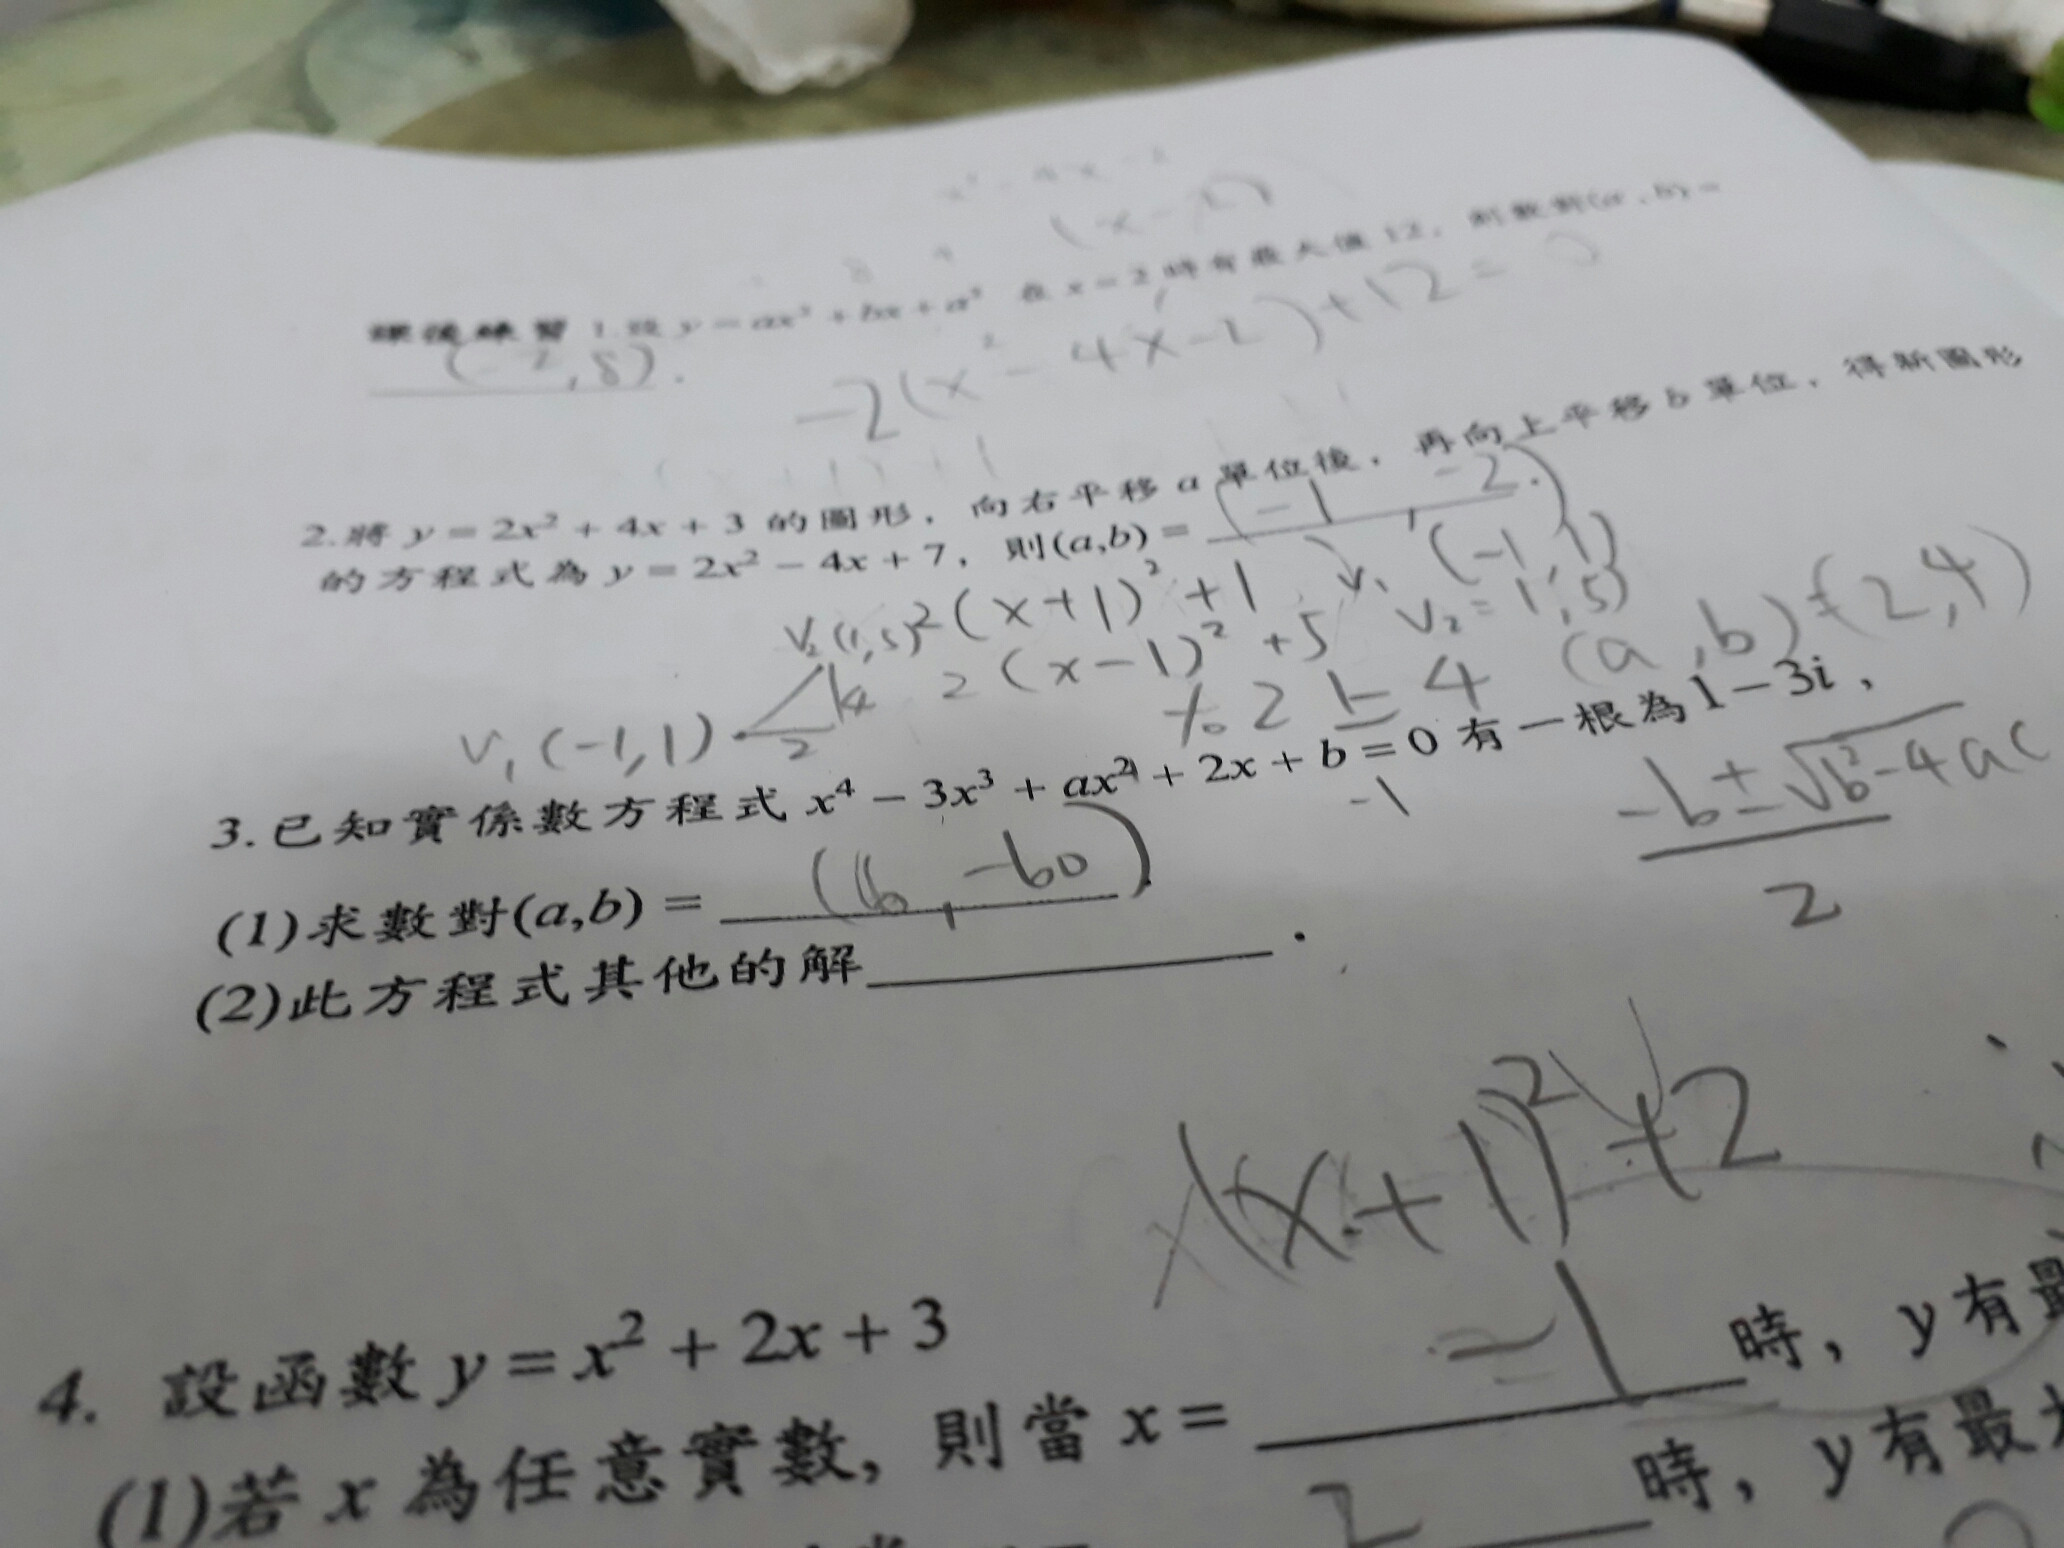 x² - 4x - 2
(x - 2)
課後練習 1.設 y = ax² + bx + a² 在 x = 2 時有最大值 12，則數對(a,b) =
(-2,8).
-2(x² - 4x - 2) + 12 = 0
(x+1)+1
2.將 y = 2x² + 4x + 3 的圖形，向右平移 a 單位後，再向上平移 b 單位，得新圖形
的方程式為 y = 2x² − 4x + 7，則(a,b) = (-1, -2).
2(x+1)²+1 V₁ (-1,1)
V₂(1,5) 2(x-1)²+5 V₂=1,5)
4 2 4 (a,b)=(2,4)
V₁(-1,1) 2
3.已知實係數方程式 x⁴ − 3x³ + ax² + 2x + b = 0 有一根為 1−3i，
-1
-b±√b²-4ac
2
(1)求數對(a,b) = (16, -60)
(2)此方程式其他的解 .
(x+1)²+2
4. 設函數 y = x² + 2x + 3
(1)若 x 為任意實數，則當 x = -1 時，y 有最
2 時，y 有最